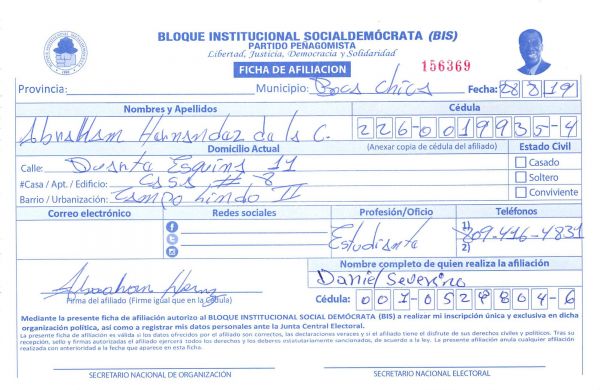 BLOQUE INSTITUCIONAL SOCIALDEMÓCRATA (BIS)
PARTIDO PEÑAGOMISTA
Libertad, Justicia, Democracia y Solidaridad
FICHA DE AFILIACION
156369
Provincia: Municipio: Boca Chica Fecha: 28/8/19
Nombres y Apellidos Cédula
Abraham Hernandez de la C. 226-0019935-4
Domicilio Actual (Anexar copia de cédula del afiliado) Estado Civil
Calle: Duarte Esquina 11 Casado
#Casa / Apt. / Edificio: Casa # 8 Soltero
Barrio / Urbanización: Campo Lindo II Conviviente
Correo electrónico Redes sociales Profesión/Oficio Teléfonos
Estudiante 1) 809-416-4831
2)
Nombre completo de quien realiza la afiliación
Daniel Severino
Firma del afiliado (Firme igual que en la Cédula) Cédula: 001-0524804-6
Mediante la presente ficha de afiliación autorizo al BLOQUE INSTITUCIONAL SOCIAL DEMÓCRATA (BIS) a realizar mi inscripción única y exclusiva en dicha
organización política, así como a registrar mis datos personales ante la Junta Central Electoral.
La presente ficha de afiliación es válida si los datos ofrecidos por el afiliado son correctos, las declaraciones veraces y si el afiliado tiene el disfrute de sus derechos civiles y políticos. Tras su
recepción, sello y firmas autorizadas el afiliado ejercerá todos los derechos y los deberes estatutariamente sancionados, de acuerdo a la ley. La presente afiliación anula cualquier afiliación
realizada con anterioridad a la fecha que aparece en esta ficha.
SECRETARIO NACIONAL DE ORGANIZACIÓN SECRETARIO NACIONAL ELECTORAL